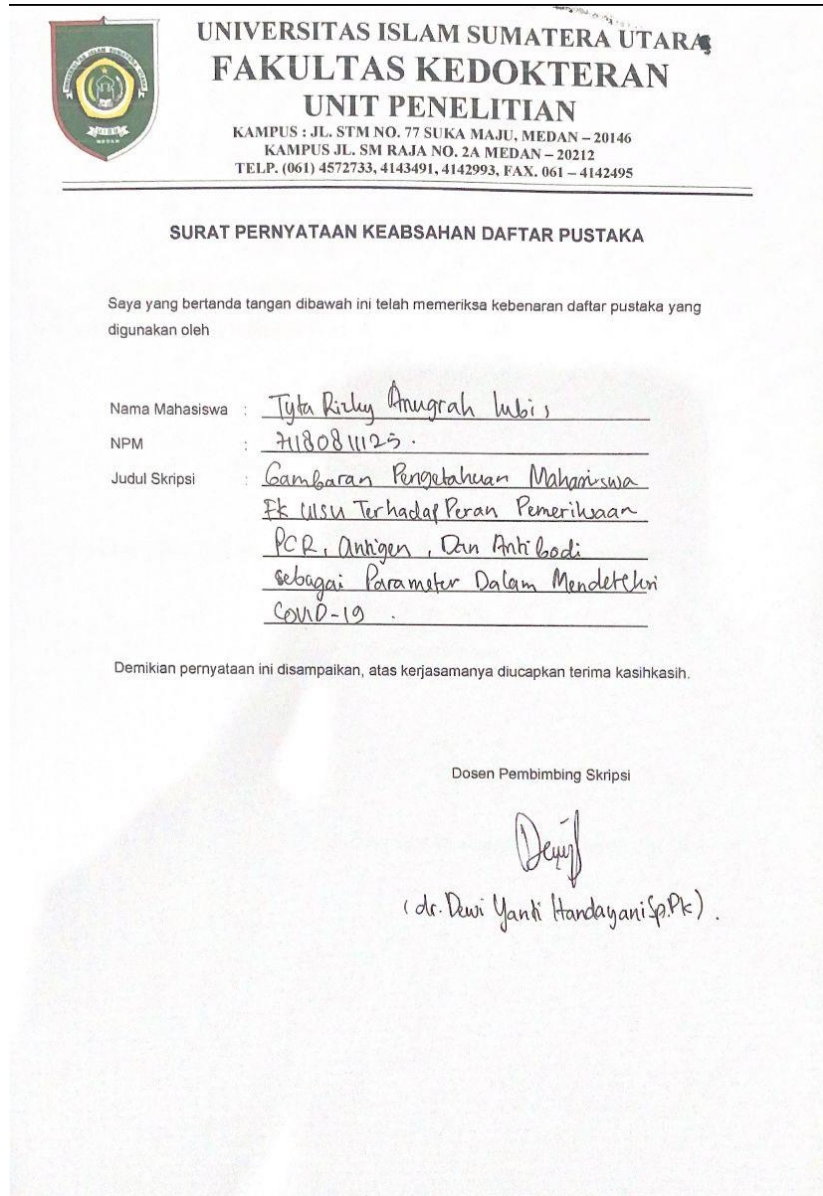 UNIVERSITAS ISLAM SUMATERA UTARA
FAKULTAS KEDOKTERAN
UNIT PENELITIAN
KAMPUS : JL. STM NO. 77 SUKA MAJU, MEDAN – 20146
KAMPUS JL. SM RAJA NO. 2A MEDAN – 20212
TELP. (061) 4572733, 4143491, 4142993, FAX. 061 – 4142495
SURAT PERNYATAAN KEABSAHAN DAFTAR PUSTAKA
Saya yang bertanda tangan dibawah ini telah memeriksa kebenaran daftar pustaka yang
digunakan oleh
Nama Mahasiswa : Tyta Rizky Anugrah lubis
NPM : 71180811125.
Judul Skripsi : Gambaran Pengetahuan Mahasiswa
Fk UISU Terhadap Peran Pemeriksaan
PCR, Antigen, Dan Antibodi
sebagai Parameter Dalam Mendeteksi
COVID-19.
Demikian pernyataan ini disampaikan, atas kerjasamanya diucapkan terima kasihkasih.
Dosen Pembimbing Skripsi
(dr. Dewi Yanti Handayani Sp.Pk).